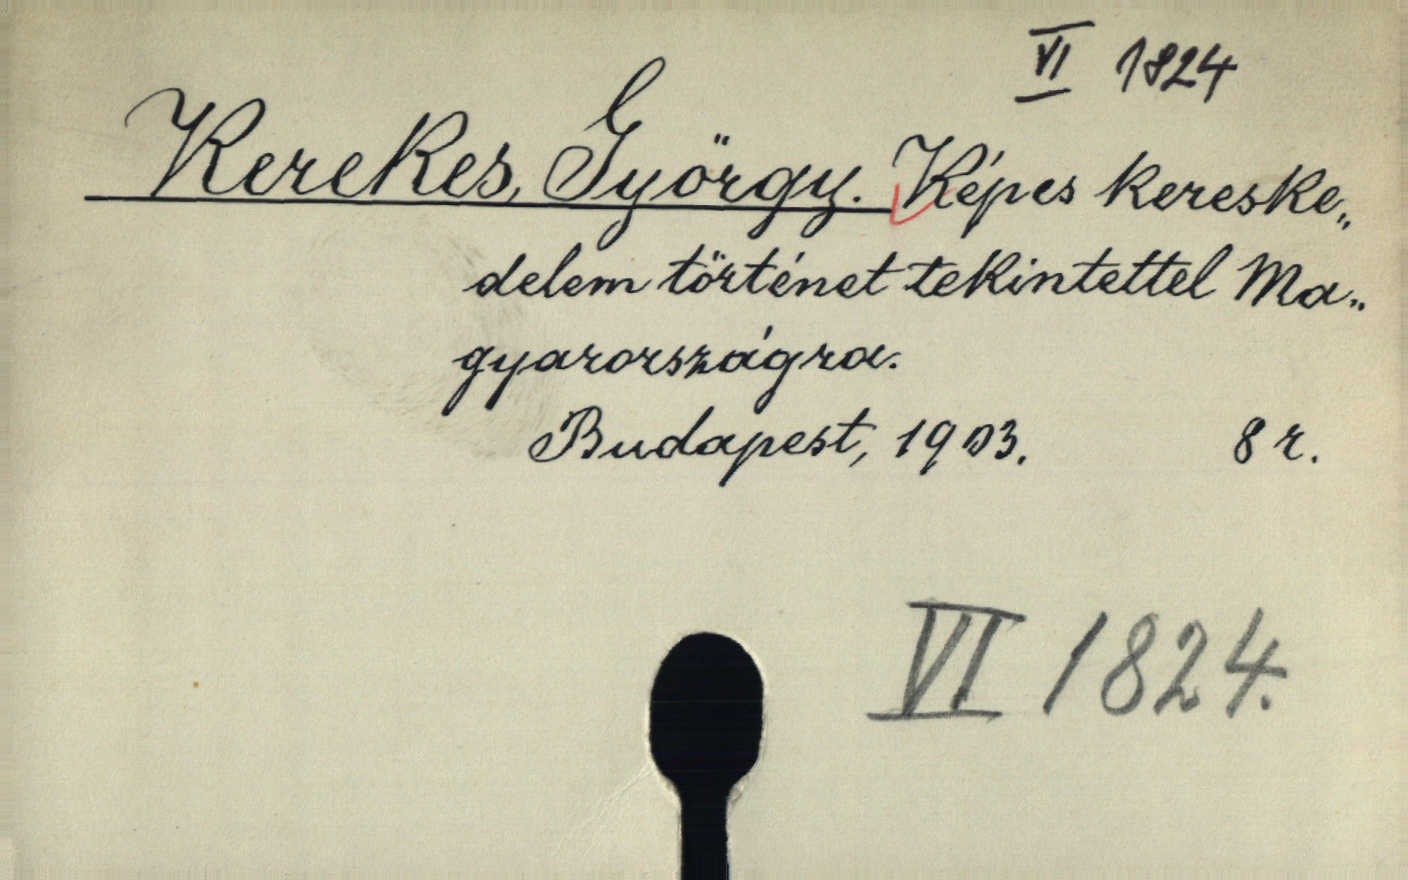 VI 1824
Kerekes, György. Képes kereske„
delem történet tekintettel Ma„
gyarországra.
Budapest, 1903. 8 r.
VI 1824.